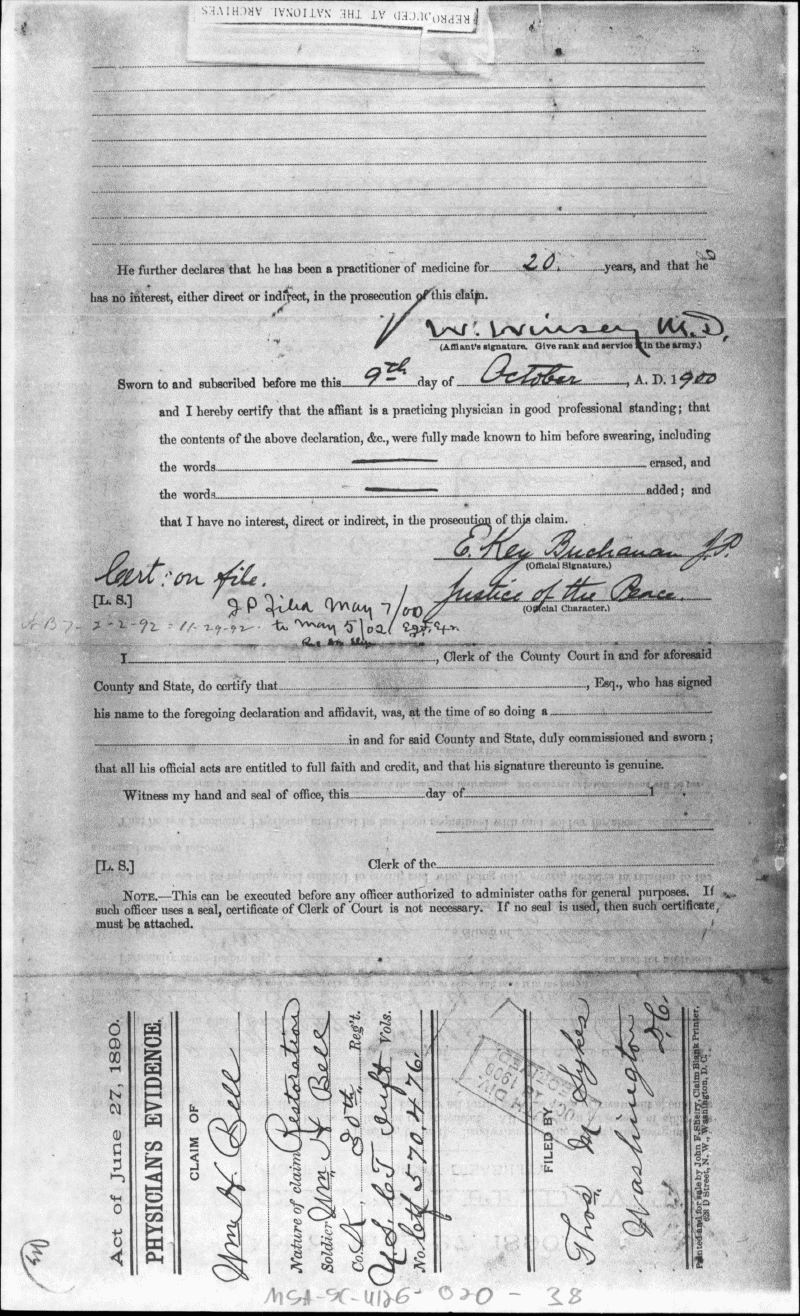 REPRODUCED AT THE NATIONAL ARCHIVES
He further declares that he has been a practitioner of medicine for 20. years, and that he
has no interest, either direct or indirect, in the prosecution of this claim.
W. Winsey M.D.
(Affiant's signature. Give rank and service if in the army.)
Sworn to and subscribed before me this 9th day of October, A. D. 1900
and I hereby certify that the affiant is a practicing physician in good professional standing; that
the contents of the above declaration, &c., were fully made known to him before swearing, including
the words erased, and
the words added; and
that I have no interest, direct or indirect, in the prosecution of this claim.
E. Key Buchanan J.P.
(Official Signature.)
Cert: on file.
Justice of the Peace.
(Official Character.)
[L. S.]
J P Filed May 7/00
2-2-92 = 11-29-92. to May 5/02
I, Clerk of the County Court in and for aforesaid
County and State, do certify that, Esq., who has signed
his name to the foregoing declaration and affidavit, was, at the time of so doing a
in and for said County and State, duly commissioned and sworn;
that all his official acts are entitled to full faith and credit, and that his signature thereunto is genuine.
Witness my hand and seal of office, this day of 1 .
[L. S.] Clerk of the
NOTE.—This can be executed before any officer authorized to administer oaths for general purposes. If
such officer uses a seal, certificate of Clerk of Court is not necessary. If no seal is used, then such certificate
must be attached.
Act of June 27, 1890.
PHYSICIAN'S EVIDENCE.
CLAIM OF
Wm H. Bell
Nature of claim Restoration
Soldier Wm. H Bell
Co. A, 30th Reg't.
U.S. C T Inft Vols.
No. Ctf 570.476.
FILED BY
Thos. M Sykes
Washington
D.C.
Printed and for sale by John F. Sherry, Claim Blank Printer,
626 D Street, N. W., Washington, D. C.
MSA-SC-4126-020-38